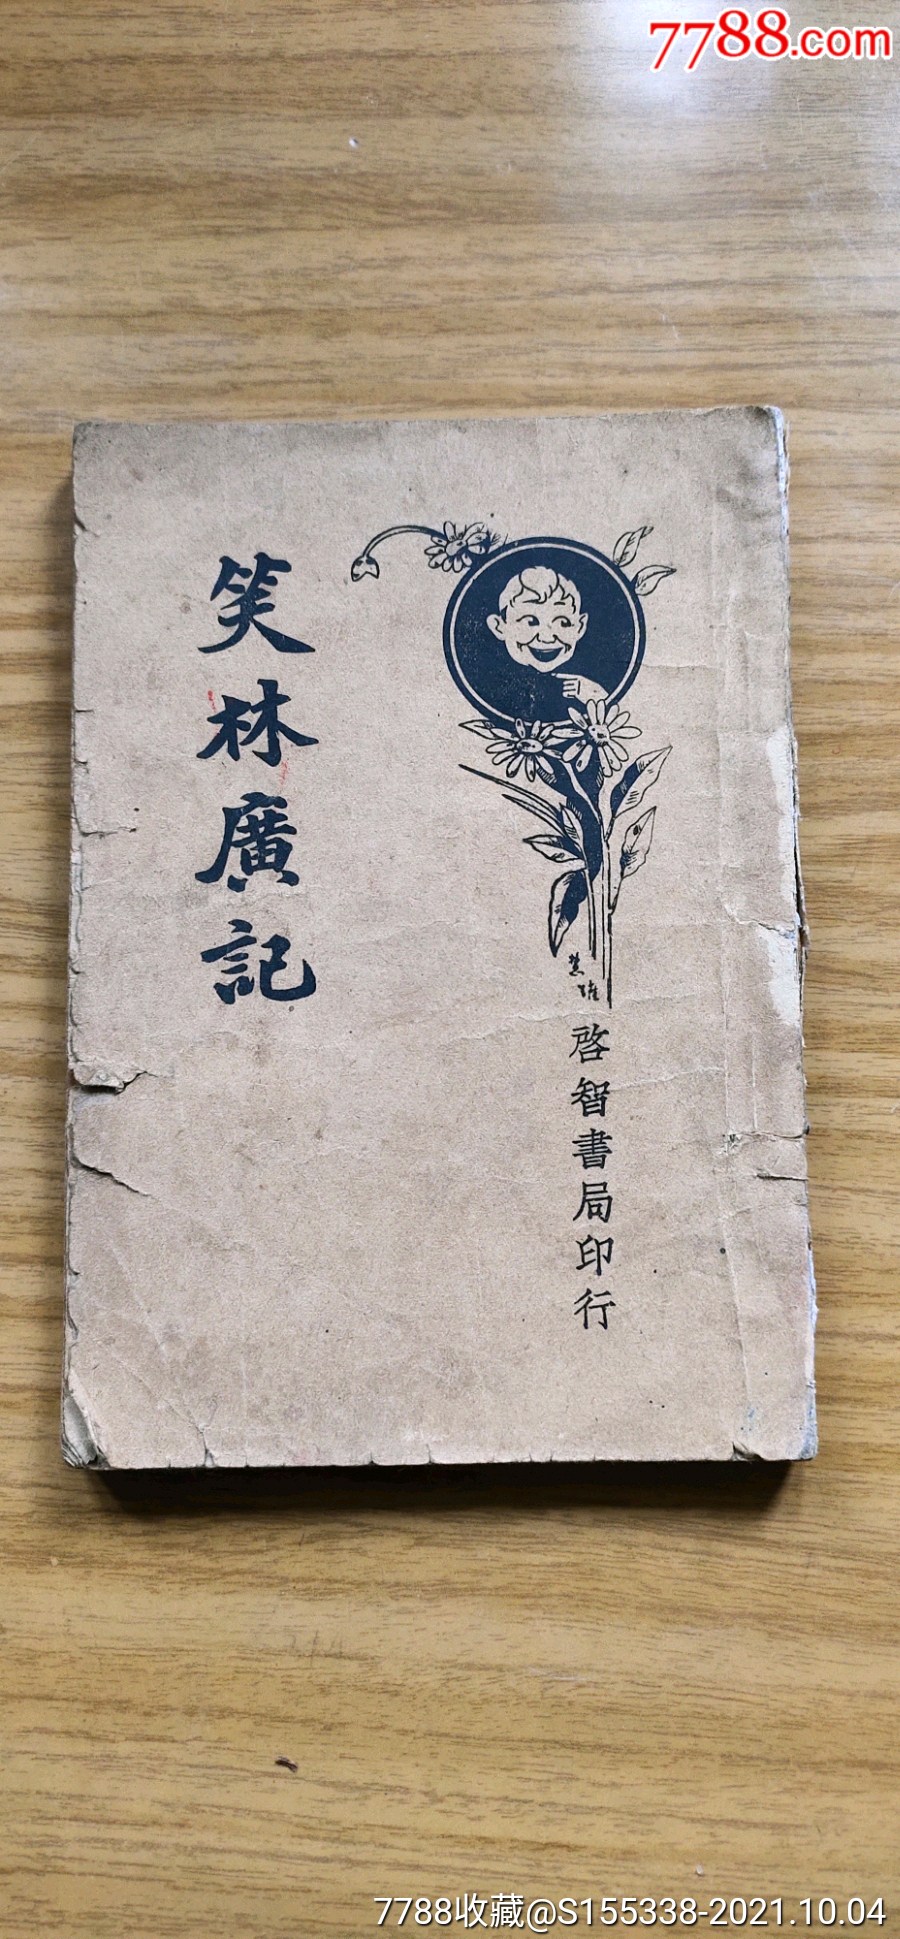 7788.com
笑林廣記
啓智書局印行
7788收藏@S155338-2021.10.04